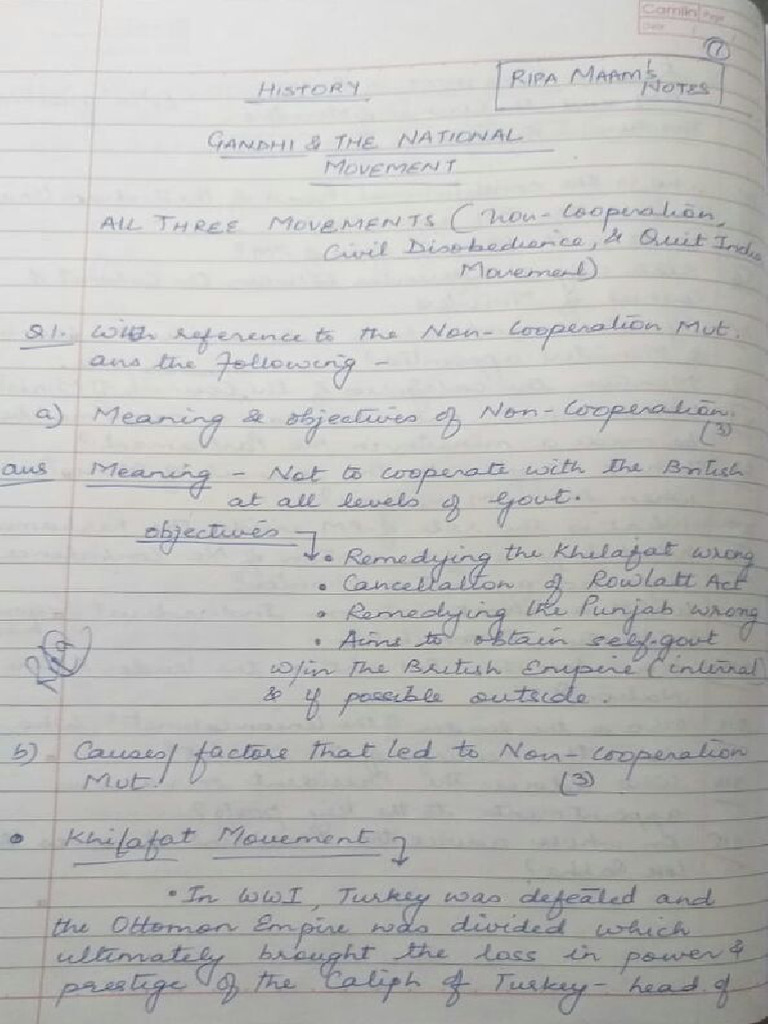 Camlin Page
Date
1
HISTORY
RIPA MAAM'S
NOTES
GANDHI & THE NATIONAL
MOVEMENT
All THREE MOVEMENTS (Non-Cooperation,
Civil Disobedience, & Quit India
Movement)
Q1. With reference to the Non-Cooperation Mvt.
ans the following -
a) Meaning & objectives of Non-Cooperation.
(3)
ans Meaning - Not to cooperate with the British
at all levels of Govt.
objectives
• Remedying the Khilafat wrong
• Cancellation of Rowlatt Act
• Remedying the Punjab wrong
• Aims to obtain self-govt
w/in the British Empire (internal)
& if possible outside.
b) Causes/factors that led to Non-Cooperation
Mvt. (3)
• Khilafat Movement
• In WWI, Turkey was defeated and
the Ottoman Empire was divided which
ultimately brought the loss in power &
prestige of the Caliph of Turkey - head of